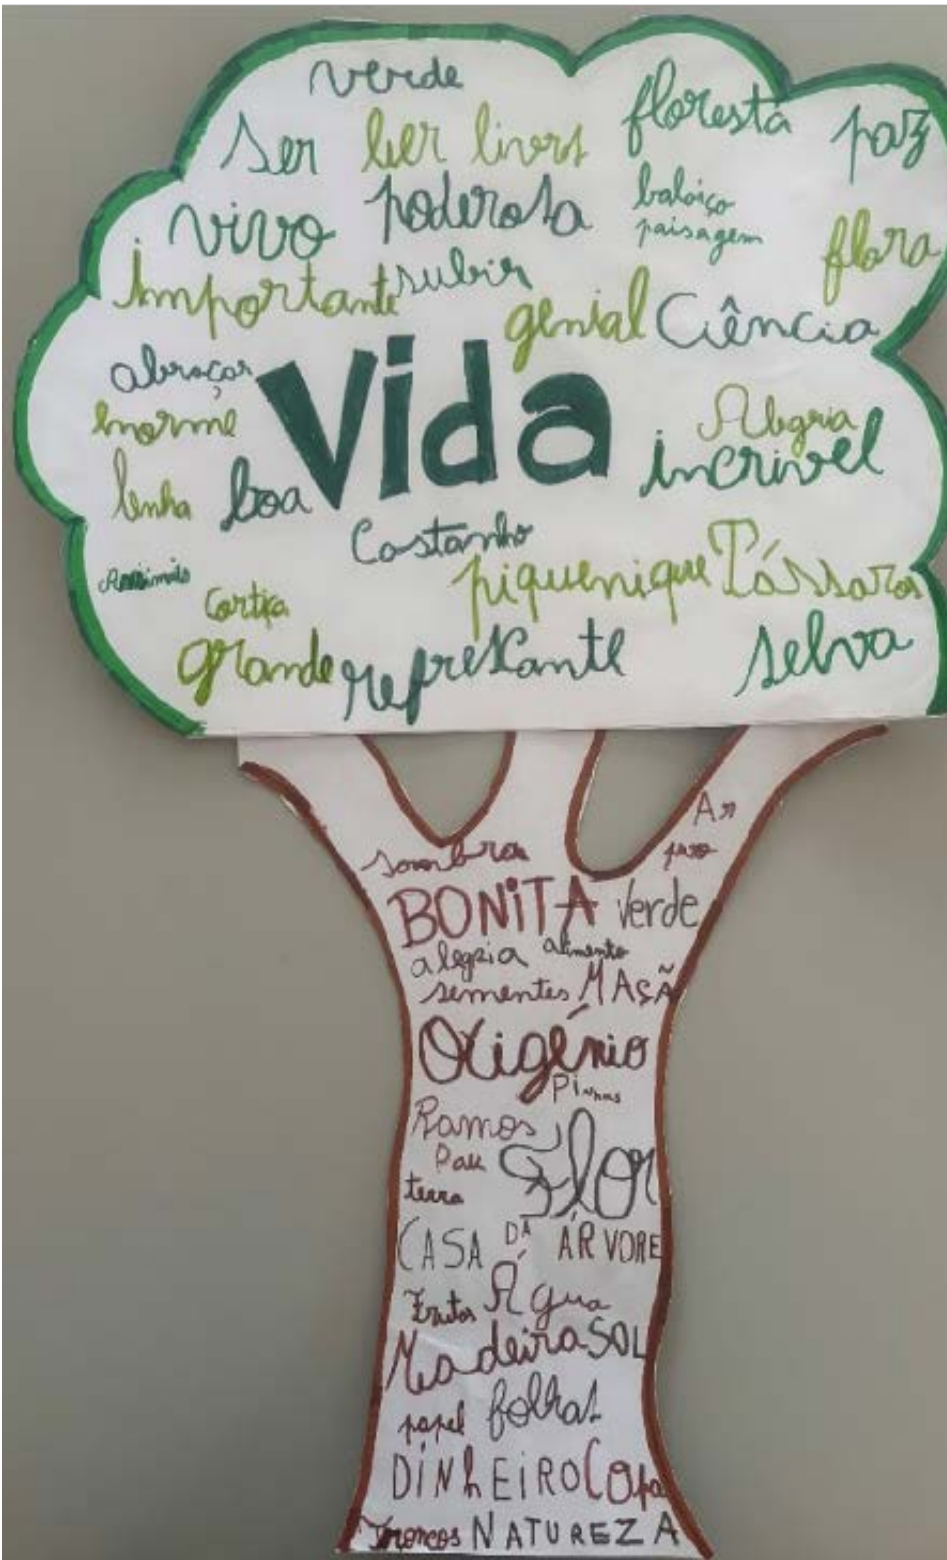 verde
ser ler livros floresta paz
vivo poderosa baloiço
paisagem flora
importante subir
genial Ciência
abraçar Vida
enorme Alegria
lenha boa incrivel
Castanho
piquenique Pássaros
Cortiça
grande refrescante selva
Ar
sombra puro
BONiTA Verde
alegria alimento
sementes MAÇÃ
Oxigénio
Pinhas
Ramos
Pau Flor
terra
CASA DA ÁRVORE
Frutos Água
Madeira SOL
papel folhas
DiNhEiRO Copa
Troncos NATUREZA